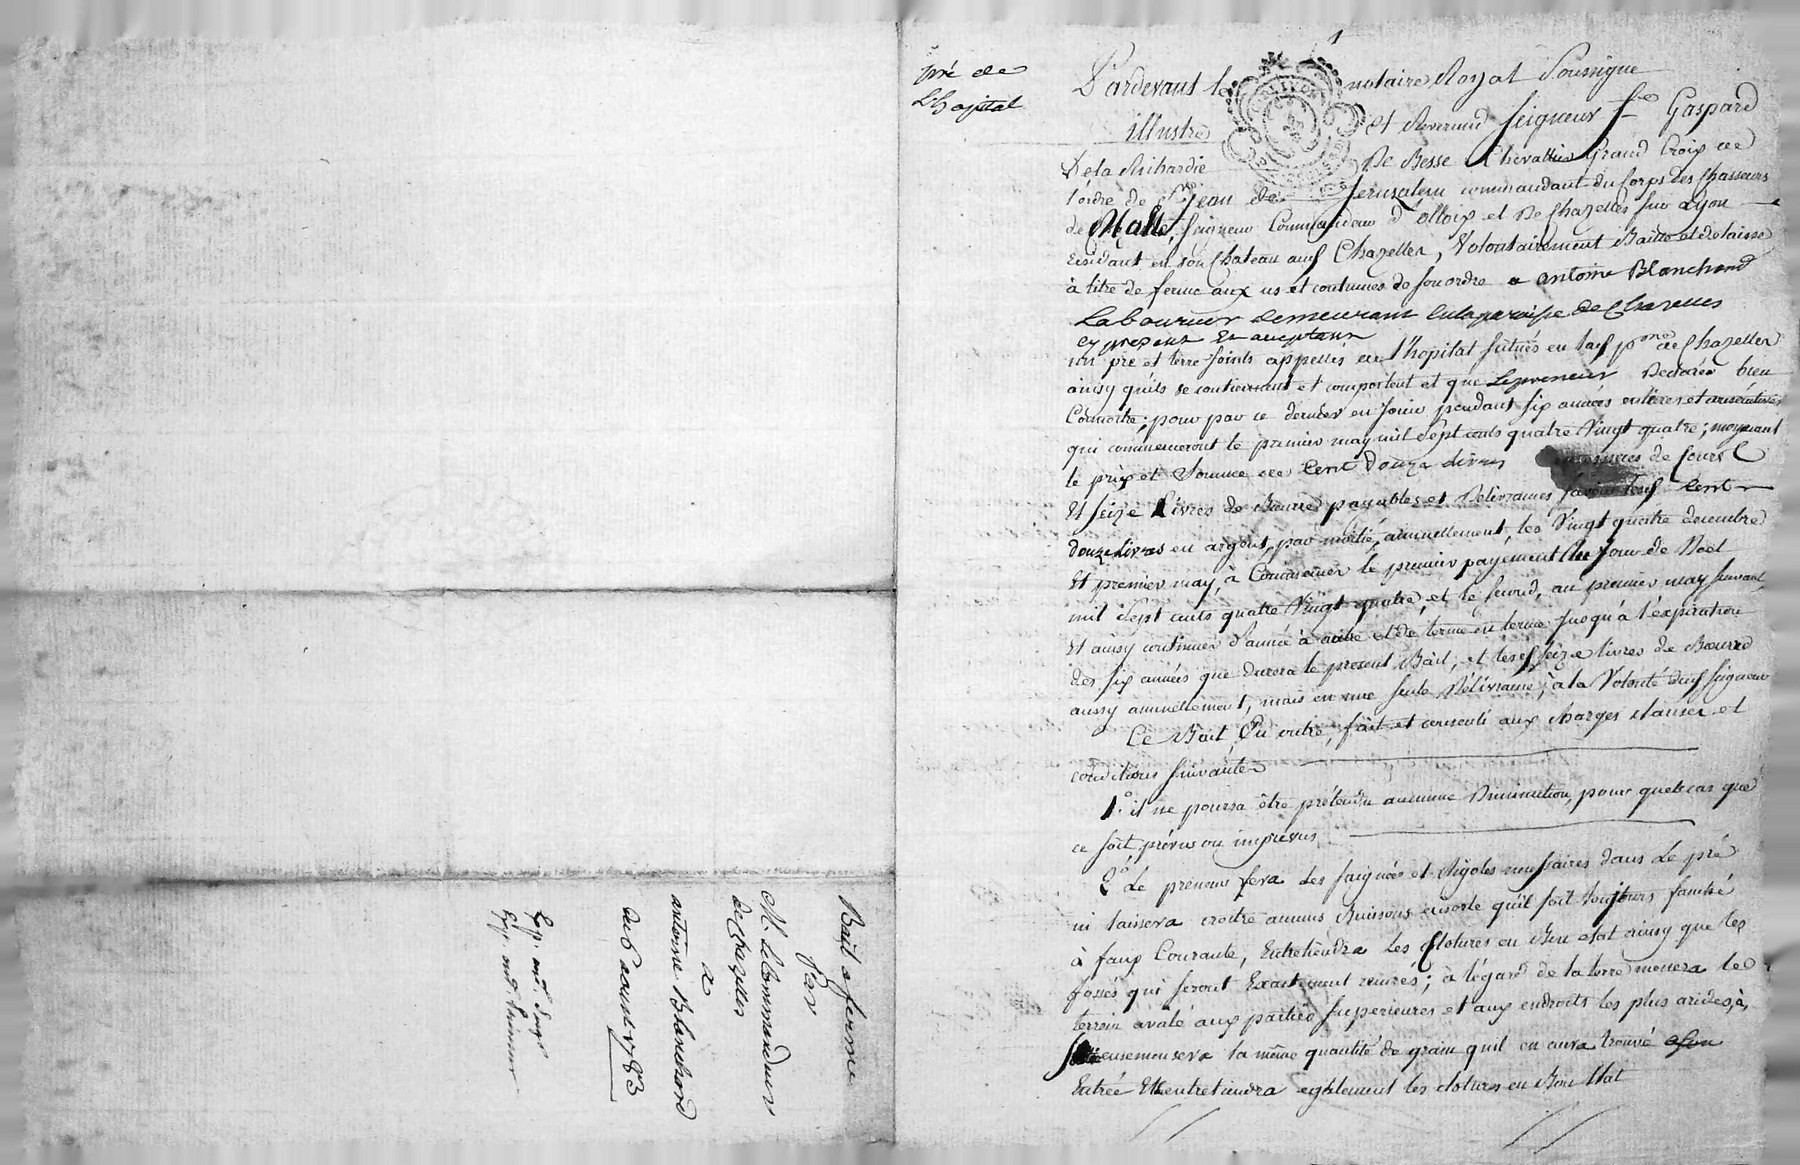 pré de
L'hopital
Pardevant le notaire Royal Soussigne
illustre et Reverend Seigneur f. Gaspard
De la Richardie De Besse Chevallier Grand Croix de
l'ordre de St Jean de Jerusalem commandant du Corps des Chasseurs
de Malte, Seigneur Commandeur d'olloix et De Chazelles sur Lyon
Residant en son Chateau aud Chazelles, Volontairement Baille et delaisse
à titre de ferme aux us et coutumes de son ordre a antoine Blanchard
Laboureur demeurant en la paroisse de Chazelles
cy present et acceptant
un pré et terre joints appellés de l'hopital situés en lad. p. de Chazelles
ainsy qu'ils se contiennent et comportent et que Le preneur Declarer bien
Connoitre; pour par ce dernier en Jouir pendant six années entieres et consecutives
qui commenceront le premier may mil sept cents quatre Vingt quatre; moyenant
le prix et Somme de Cent Douze livres de Cours
Et seize Livres de Beurre payables et Delivrables Cent
douze livres en argent, par moitié, annuellement, les Vingt quatre decembre
Et premier may, à Commencer le premier payement du Jour de Noel
mil sept cents quatre Vingt quatre, et le second, au premier may suivant
Et ainsy continuer d'année à autre et de terme en terme jusqu'à l'expiration
des six années que durera le present Bail; et lesd seize livres de Beurre
aussy annuellement, mais en une seule Délivrance, à la Volonté dud Seigneur
Ce Bail, En outre, fait et consenti aux charges clauses et
conditions suivantes
1.° il ne pourra être pretendu aucunne Diminution, pour quelcas que
ce soit, prévu ou imprévus
2.° Le preneur fera des saignées et Rigoles necessaires dans Le pré
ni laissera croitre aucuns Buissons ensorte qu'il soit toujours fauché
à faux Courante, Entretiendra les Clotures en Bon etat ainsy que les
fossés qui seront Exactement recurés; à l'égard de la terre menera le
terrain avalé aux parties superieures et aux endroits les plus arides, à
ensemensera la même quantité de grain quil en aura trouvé a son
Entrée Et entretiendra egalement les clotures en Bon Etat
Bail a ferme
Par
M. Le Commandeur
de Chazelles
a
antoine Blanchard
du 6 aoust 1783